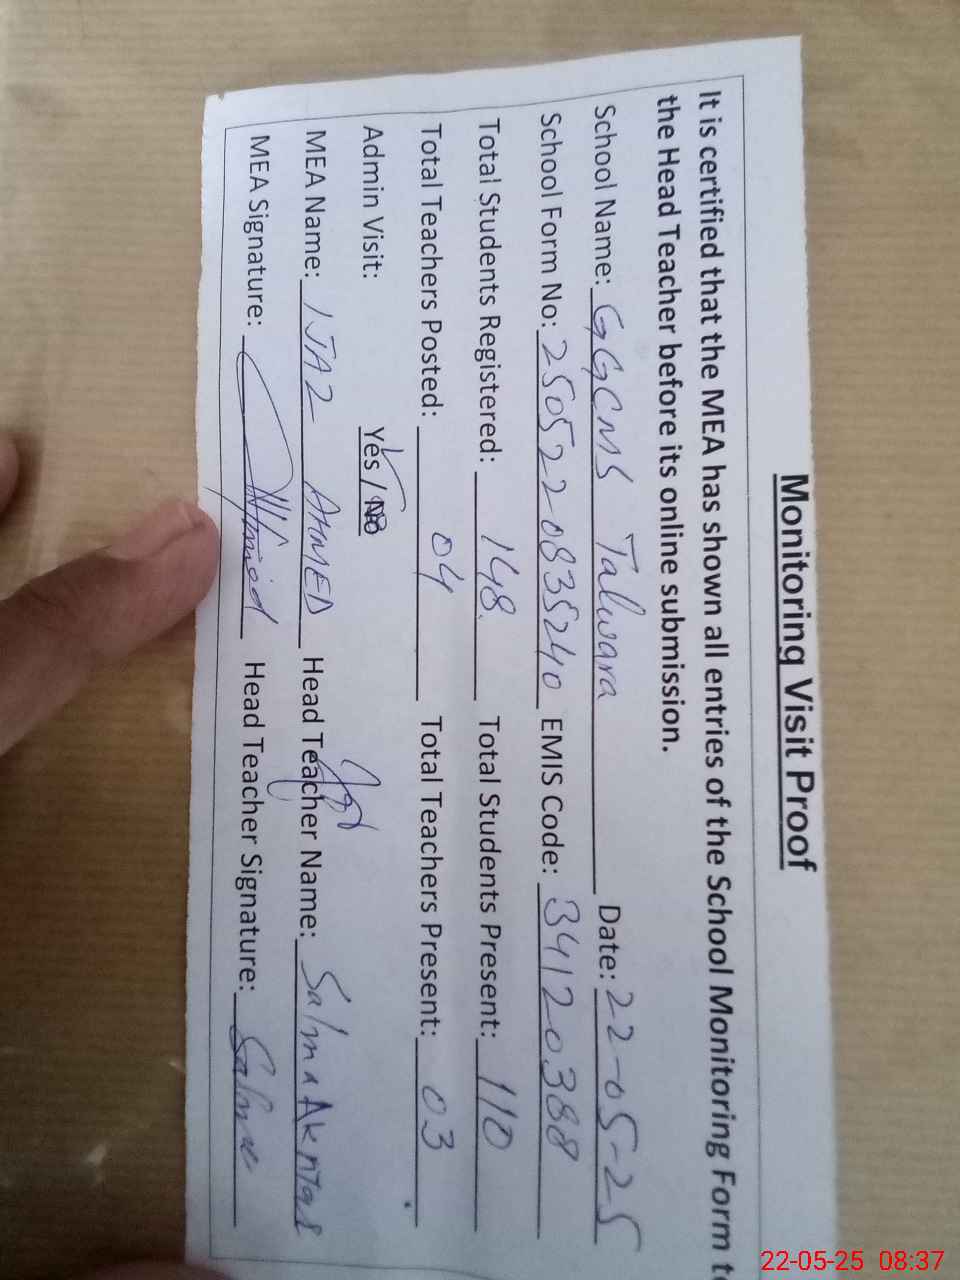 Monitoring Visit Proof
It is certified that the MEA has shown all entries of the School Monitoring Form to
the Head Teacher before its online submission.
School Name: GGCMS Talwara Date: 22-05-25
School Form No: 2505220835240 EMIS Code: 34120388
Total Students Registered: 148 Total Students Present: 110
Total Teachers Posted: 04 Total Teachers Present: 03
Admin Visit: Yes / No
MEA Name: IJAZ AHMED Head Teacher Name: Salma Akhtar
MEA Signature: Head Teacher Signature: Salma
22-05-25 08:37